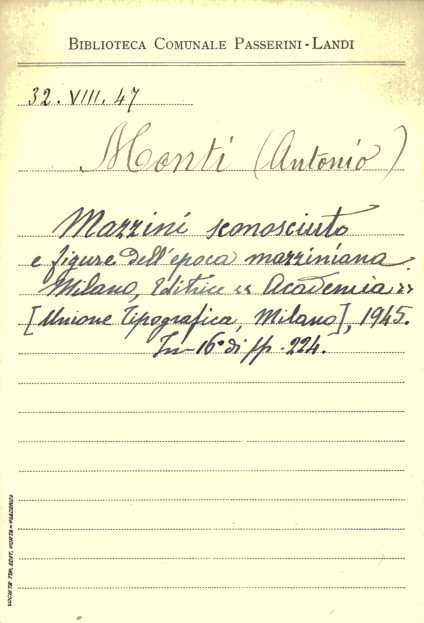 BIBLIOTECA COMUNALE PASSERINI-LANDI
32. VIII. 47
Monti (Antonio)
Mazzini sconosciuto
e figure dell'epoca mazziniana.
Milano, Editrice "Academia"
[Unione Tipografica, Milano], 1945.
In-16° di pp. 224.
SOCIETÀ TIP. EDIT. PORTA - PIACENZA